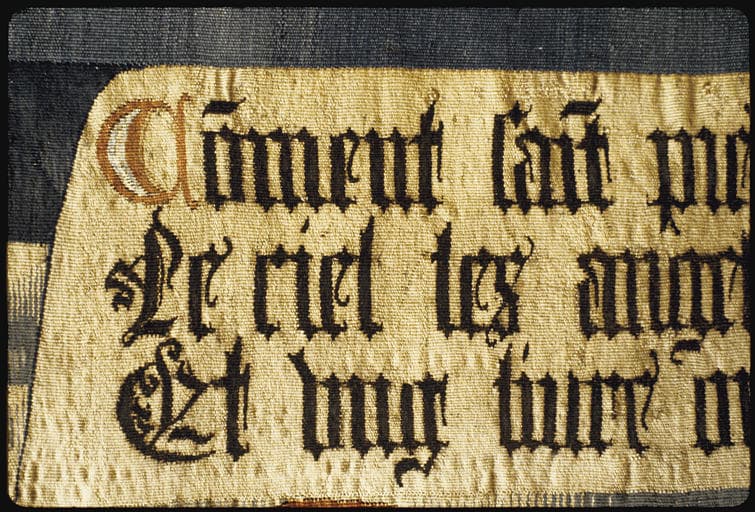 Cōment saīt pie
Le ciel lez ange
Et vng liure o